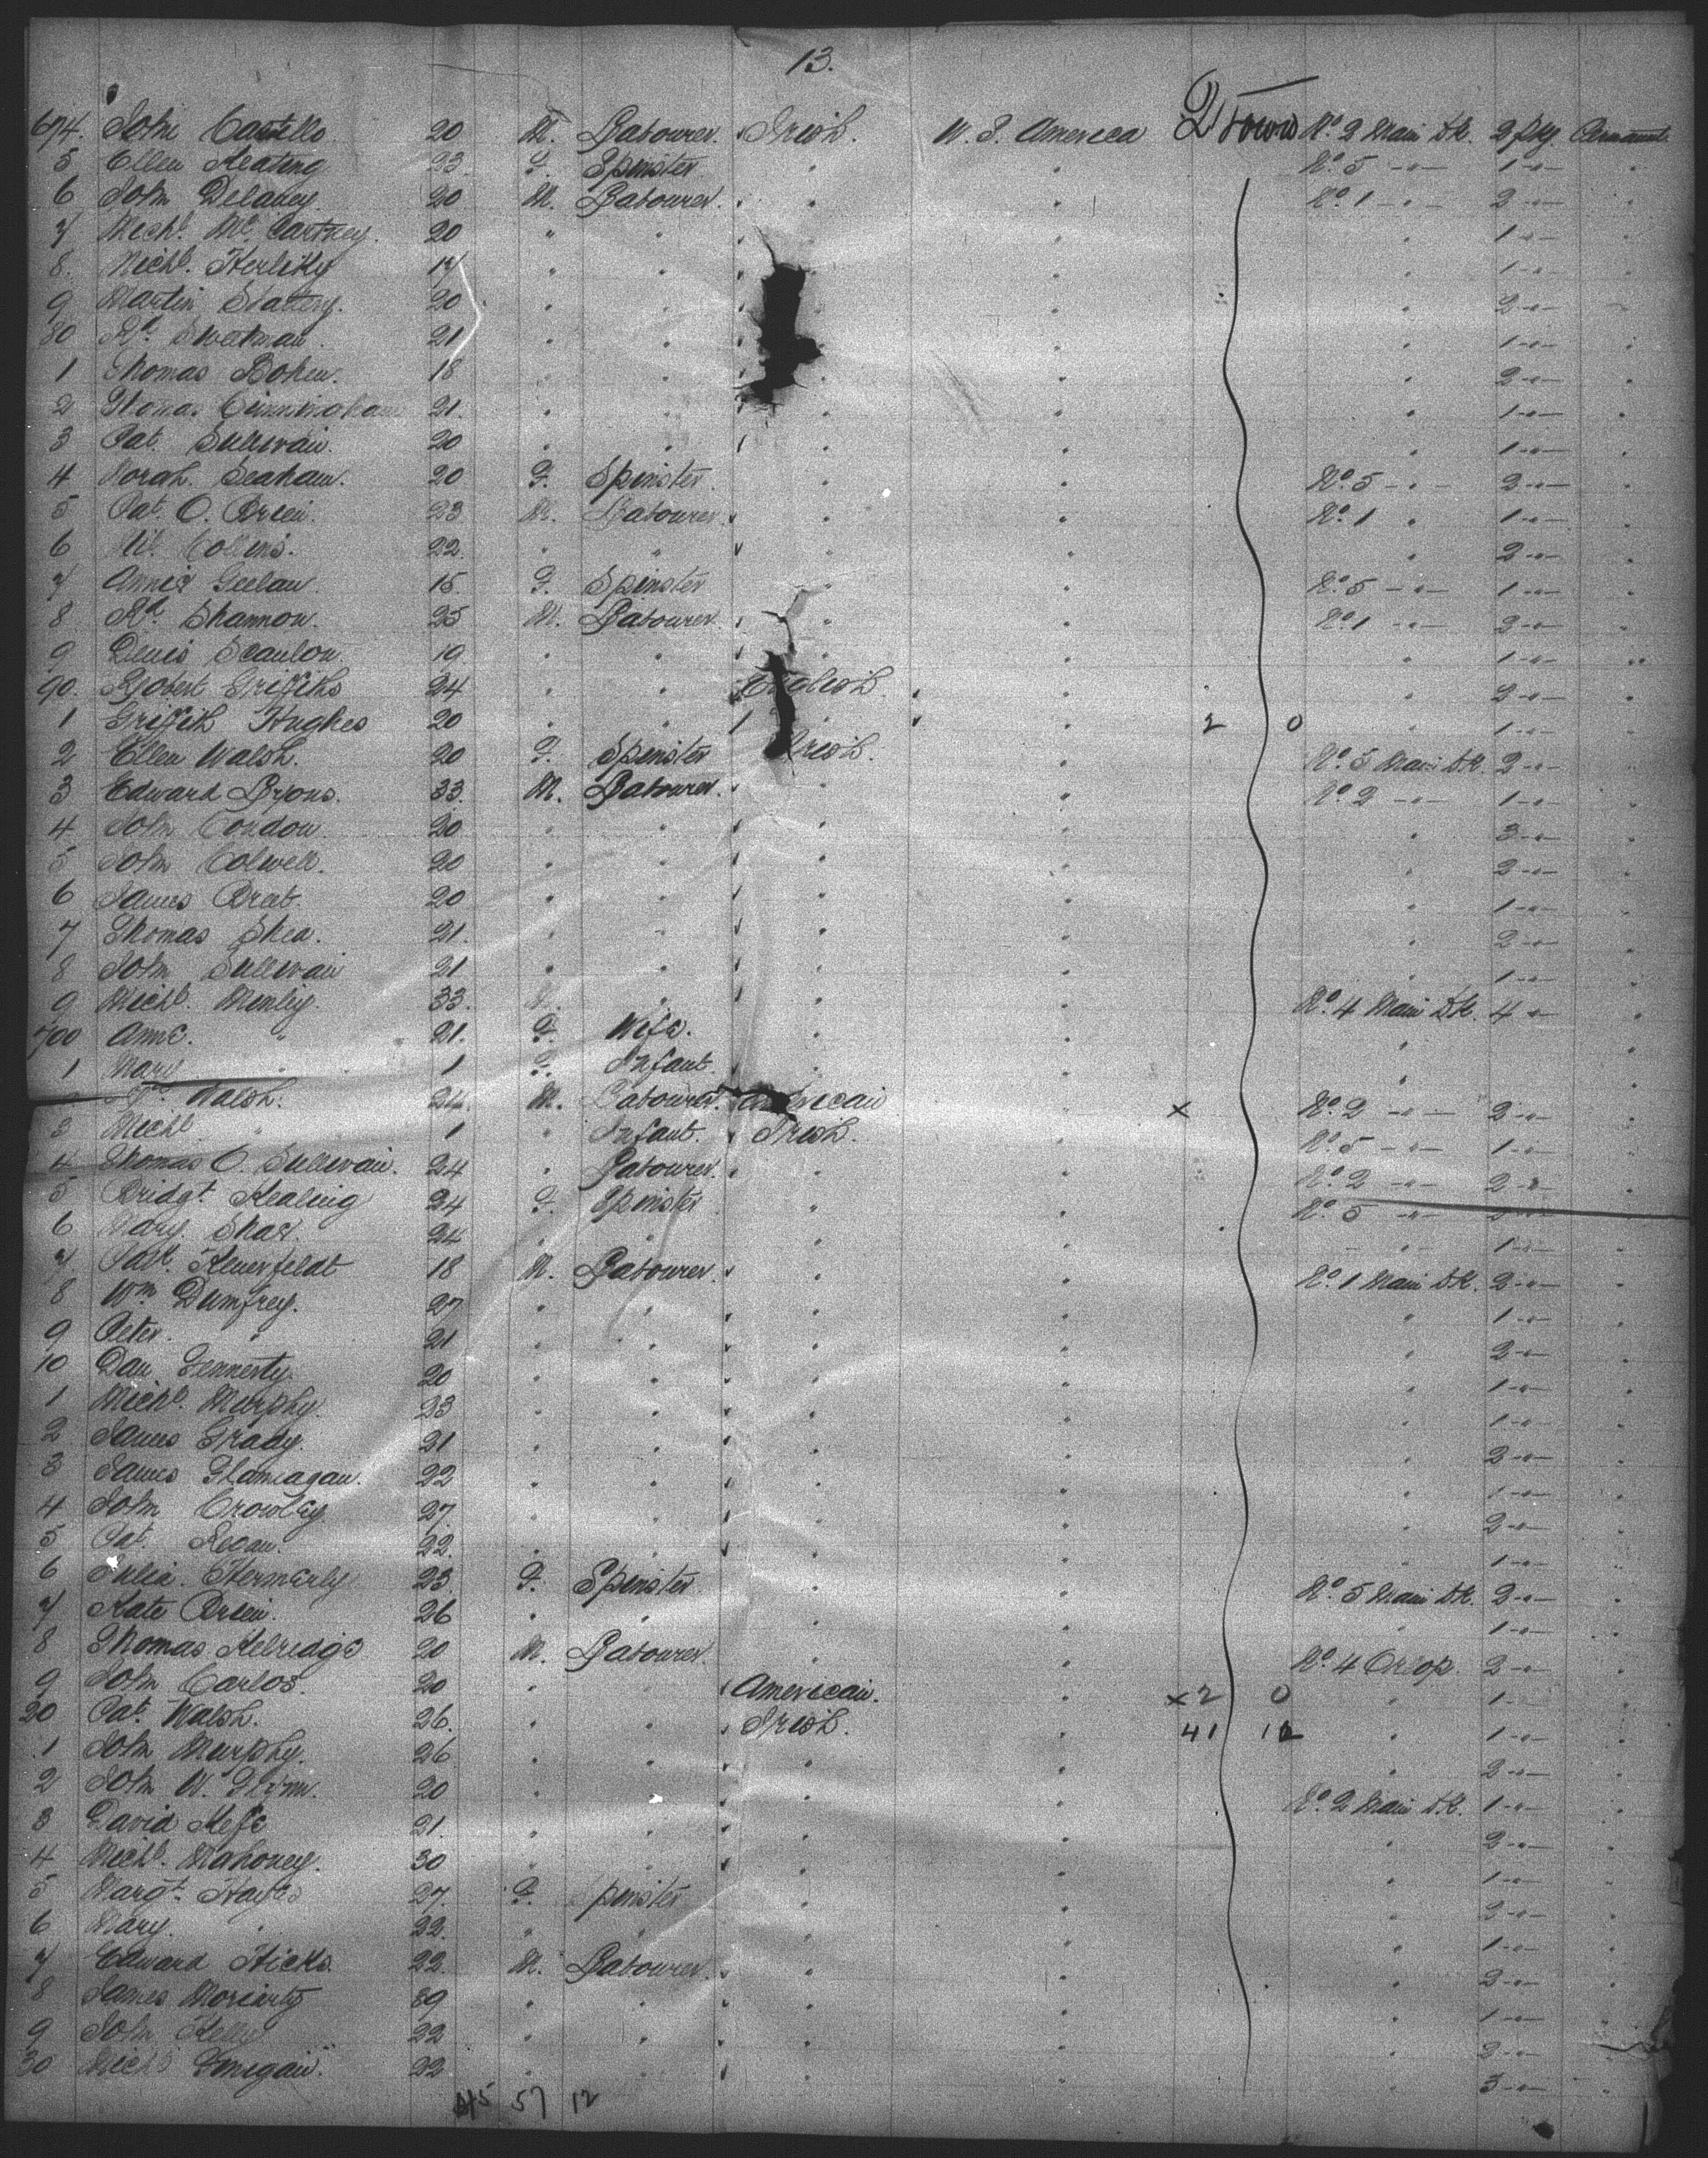 13.
674. John Castello 20 M. Labourer. Irish. U. S. America 2 Town No. 2 Main Dk. 2 pkg. Permanent
5 Ellen Keating 23. F. Spinster " " No. 5 - " - 1 - " -
6 John Delaney. 20 M. Labourer. " " No. 1 - " - 2 - " -
7 Michl. McCartney. 20 " " " " " 1 - " -
8. Michl. Herlihy 19 " " " " " 1 - " -
9 Martin Slattery. 20 " " " " " 2 - " -
80 Rd. Sweetman. 21 " " " " " 1 - " -
1 Thomas Bohen. 18 " " " " " 2 - " -
2 Thomas Cunningham 21. " " " " " 1 - " -
3 Pat. Sullivan. 20 " " " " " 1 - " -
4 Norah. 20 F. Spinster. " " No. 5 - " - 2 - " -
5 Pat. O. Brien. 23 M. Labourer. " " No. 1 " 1 - " -
6 Collins. 22. " " " " " 2 - " -
7 Annie Geelan. 15. F. Spinster " " No. 5 - " - 1 - " -
8 Rd. Shannon. 25 M. Labourer. " " No. 1 - " - 2 - " -
9 Denis Scanlon. 19. " " " " " 1 - " -
90. Robert Griffiths 24 " " English. " " 2 - " -
1 Griffith Hughes 20 " " " " 2 0 " 1 - " -
2 Ellen Walsh. 20 F. Spinster Irish. " No. 5 Main Dk. 2 - " -
3 Edward Lyons. 33. M. Labourer. " " No. 2 - " - 1 - " -
4. John Condon. 20 " " " " " 3 - " -
5 John Colwell. 20 " " " " " 2 - " -
6 James Brett. 20 " " " " " 1 - " -
7 Thomas Shea. 21. " " " " " 2 - " -
8 John Sullivan 21 " " " " " 1 - " -
9 Michl. Manley. 33. M. " " " No. 4 Main Dk. 4 - "
700 Anne. " 21. F. Wife. " " "
1 Mary " 1 F. Infant. " " "
Walsh. 24. M. Labourer. American x No. 2 - " - 2 - " -
3 Michl. " 1 " Infant. Irish. No. 5 - " - 1 - " -
4 Thomas O. Sullivan. 24 " Labourer. " " No. 2 - " - 2 - " -
5 Bridgt. Healing 24 F. Spinster " " No. 5 - " -
6 Mary. 24 " " " " " 1 - " -
7 Henerfeldt 18 M. Labourer. " " No. 1 Main Dk. 2 - " -
8 Wm Dumfrey. 27 " " " " " 1 - " -
9 Peter. " 21 " " " " " 2 - " -
10 Dan Fennerty. 20 " " " " " 1 - " -
1 Michl. Murphy. 23 " " " " " 1 - " -
2 James Grady. 21 " " " " " 2 - " -
3 James Flannagan. 22 " " " " " 1 - " -
4 John Crowley 27. " " " " " 2 - " -
5 Pat. Regan. 22. " " " " " 1 - " -
6 Julia. 23. F. Spinster " " No. 5 Main Dk. 2 - " -
7 Kate Brien. 26 " " " " " 1 - " -
8 Thomas Kelredge 20 M. Labourer. " " No. 4 Orlop. 2 - " -
9 John Carlos. 20 " " American. " x 2 0 " 1 - " -
20 Pat. Walsh. 26. " " Irish. " 41 12 " 1 - " -
1 John Murphy. 26 " " " " " 2 - " -
2 John W. Flynn. 20 " " " " No. 2 Main Dk. 1 - " -
3 David 21. " " " " " 2 - " -
4 Michl. Mahoney. 30 " " " " " 1 - " -
5 Margt. Hayes 27. F. Spinster " " " 2 - " -
6 Mary. " 22. " " " " " 1 - " -
7 Edward Hicks. 22. M. Labourer. " " " 2 - " -
8 James Moriarty 39 " " " " " 1 - " -
9 John Kelly 22 " " " " " 2 - " -
30 Michl. Finegan. 22 " " " " " 3 - " -
45 57 12